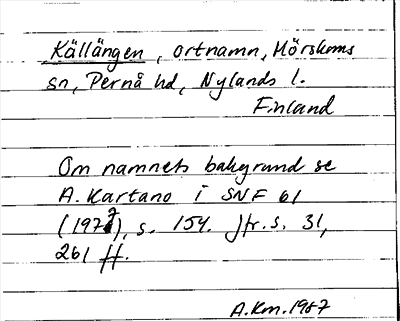 Källängen, ortnamn, Mörskoms
sn, Pernå hd, Nylands l.
Finland
Om namnets bakgrund se
A. Kartano i SNF 61
(1977), s. 154. Jfr. s. 31,
261 ff.
A.Km.1987